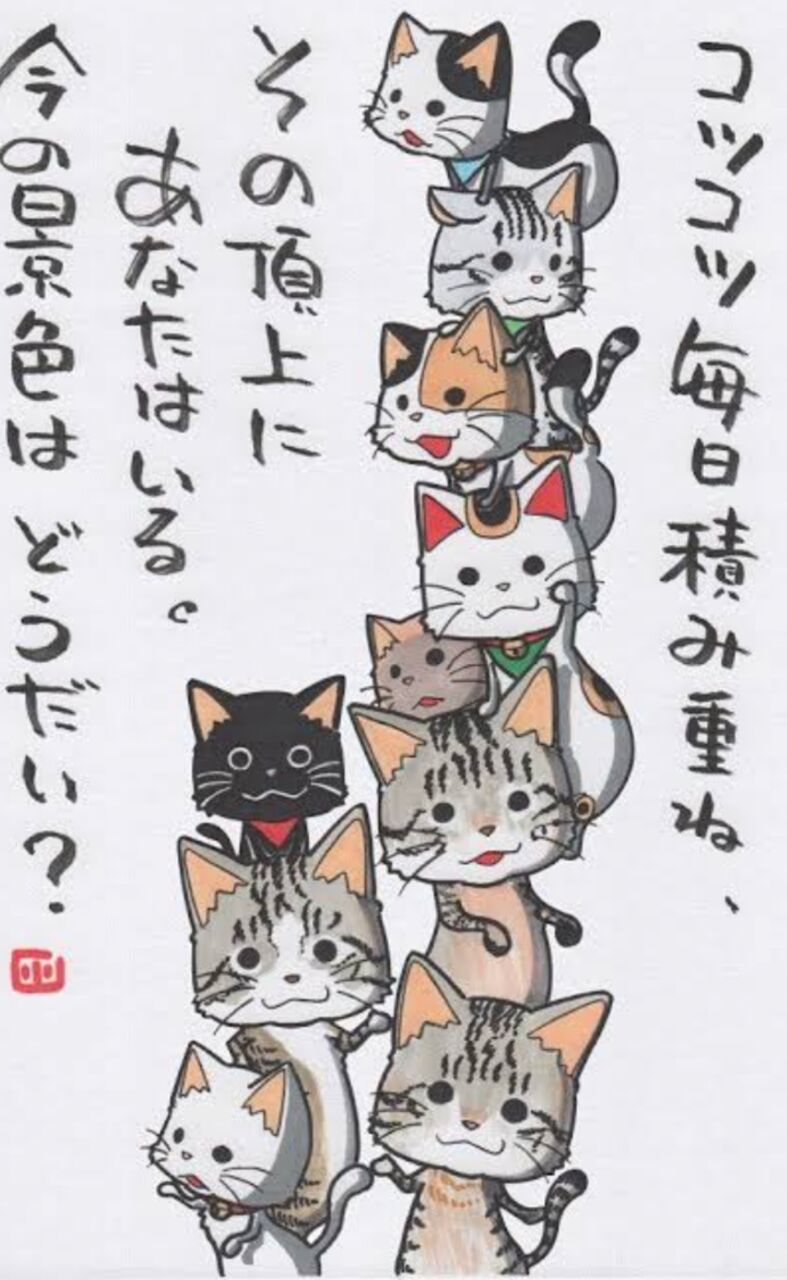 コツコツ毎日積み重ね、
その頂上に
あなたはいる。
今の景色はどうだい?